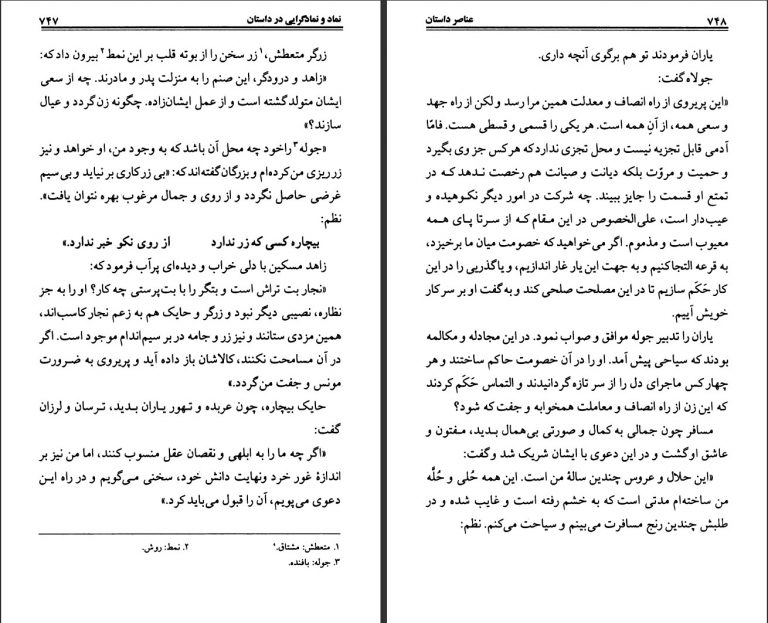 نماد و نمادگرایی در داستان ۷۴۷
زرگر متعطش،۱ زر سخن را از بوته قلب بر این نمط۲ بیرون داد که:
«زاهد و درودگر، این صنم را به منزلت پدر و مادرند. چه از سعی
ایشان متولد گشته است و از عمل ایشان‌زاده. چگونه زن گردد و عیال
سازند؟»
«جوله۳ را خود چه محل آن باشد که به وجود من، او خواهد و نیز
زرریزی من کرده‌ام و بزرگان گفته‌اند که: «بی زر کاری بر نیاید و بی سیم
غرضی حاصل نگردد و از روی و جمال مرغوب بهره نتوان یافت».
نظم:
بیچاره کسی که زر ندارد از روی نکو خبر ندارد.»
زاهد مسکین با دلی خراب و دیده‌ای پرآب فرمود که:
«نجار بت تراش است و بتگر را با بت‌پرستی چه کار؟ او را به جز
نظاره، نصیبی دیگر نبود و زرگر و حایک هم به زعم نجار کاسب‌اند،
همین مزدی ستانند و نیز زر و جامه در بر سیم‌اندام موجود است. اگر
در آن مسامحت نکنند، کالاشان باز داده آید و پریروی به ضرورت
مونس و جفت من گردد.»
حایک بیچاره، چون عربده و تهور یاران بدید، ترسان و لرزان
گفت:
«اگر چه ما را به ابلهی و نقصان عقل منسوب کنند، اما من نیز بر
اندازهٔ غور خرد ونهایت دانش خود، سخنی می‌گویم و در راه این
دعوی می‌پویم، آن را قبول می‌باید کرد.»
۱. متعطش: مشتاق. ۲. نمط: روش.
۳. جوله: بافنده.
۷۴۸ عناصر داستان
یاران فرمودند تو هم برگوی آنچه داری.
جولاه گفت:
«این پریروی از راه انصاف و معدلت همین مرا رسد و لکن از راه جهد
و سعی همه، از آنِ همه است. هر یکی را قسمی و قسطی هست. فامّا
آدمی قابل تجزیه نیست و محل تجزی ندارد که هر کس جز وی بگیرد
و حمیت و مروّت بلکه دیانت و صیانت هم رخصت ندهد که در
تمتع او قسمت را جایز ببیند. چه شرکت در امور دیگر نکوهیده و
عیب‌دار است، علی‌الخصوص در این مقام که از سر تا پای همه
معیوب است و مذموم. اگر می‌خواهید که خصومت میان ما برخیزد،
به قرعه التجا کنیم و به جهت این یار غار اندازیم، و یا گذریی را در این
کار حَکَم سازیم تا در این مصلحت صلحی کند و به گفت او بر سر کار
خویش آییم.
یاران را تدبیر جوله موافق و صواب نمود. در این مجادله و مکالمه
بودند که سیاحی پیش آمد. او را در آن خصومت حاکم ساختند و هر
چهار کس ماجرای دل را از سر تازه گردانیدند و التماس حَکَم کردند
که این زن از راه انصاف و معاملت همخوابه و جفت که شود؟
مسافر چون جمالی به کمال و صورتی بی‌همال بدید، مفتون و
عاشق او گشت و در این دعوی با ایشان شریک شد و گفت:
«این حلال و عروس چندین سالهٔ من است. این همه حُلی و حُلّه
من ساخته‌ام مدتی است که به خشم رفته است و غایب شده و در
طلبش چندین رنج مسافرت می‌بینم و سیاحت می‌کنم. نظم: